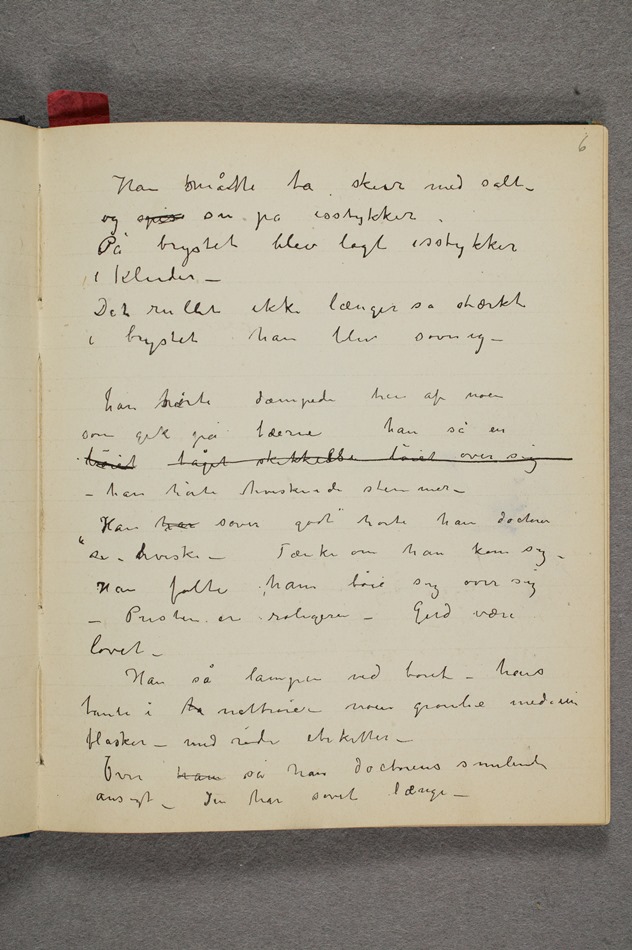 6
Han måtte ta skeer med salt –
og spise sne på isstykker.
På brystet blev lagt isstykker
i Kluder –
Det rullet ikke længer så stærkt
i brystet han blev søvnig –
han hørte dæmpede trin af noen
som gik på tæerne han så en
bøiet tåget skikkelse bøiet over sig
– han hørte hviskende stemmer –
Han har sover godt" hørte han doctoren
"se – hviske – Tænk om han kom sig –
Han følte ham bøie sig over sig
– Pusten er roligere – Gud være
lovet –
Han så lampen ved boret – hans
tante i nattrøien noen grønne medicin
flasker – med røde etiketter –
Over ham så han doctorens smilende
ansigt – Du har sovet længe –